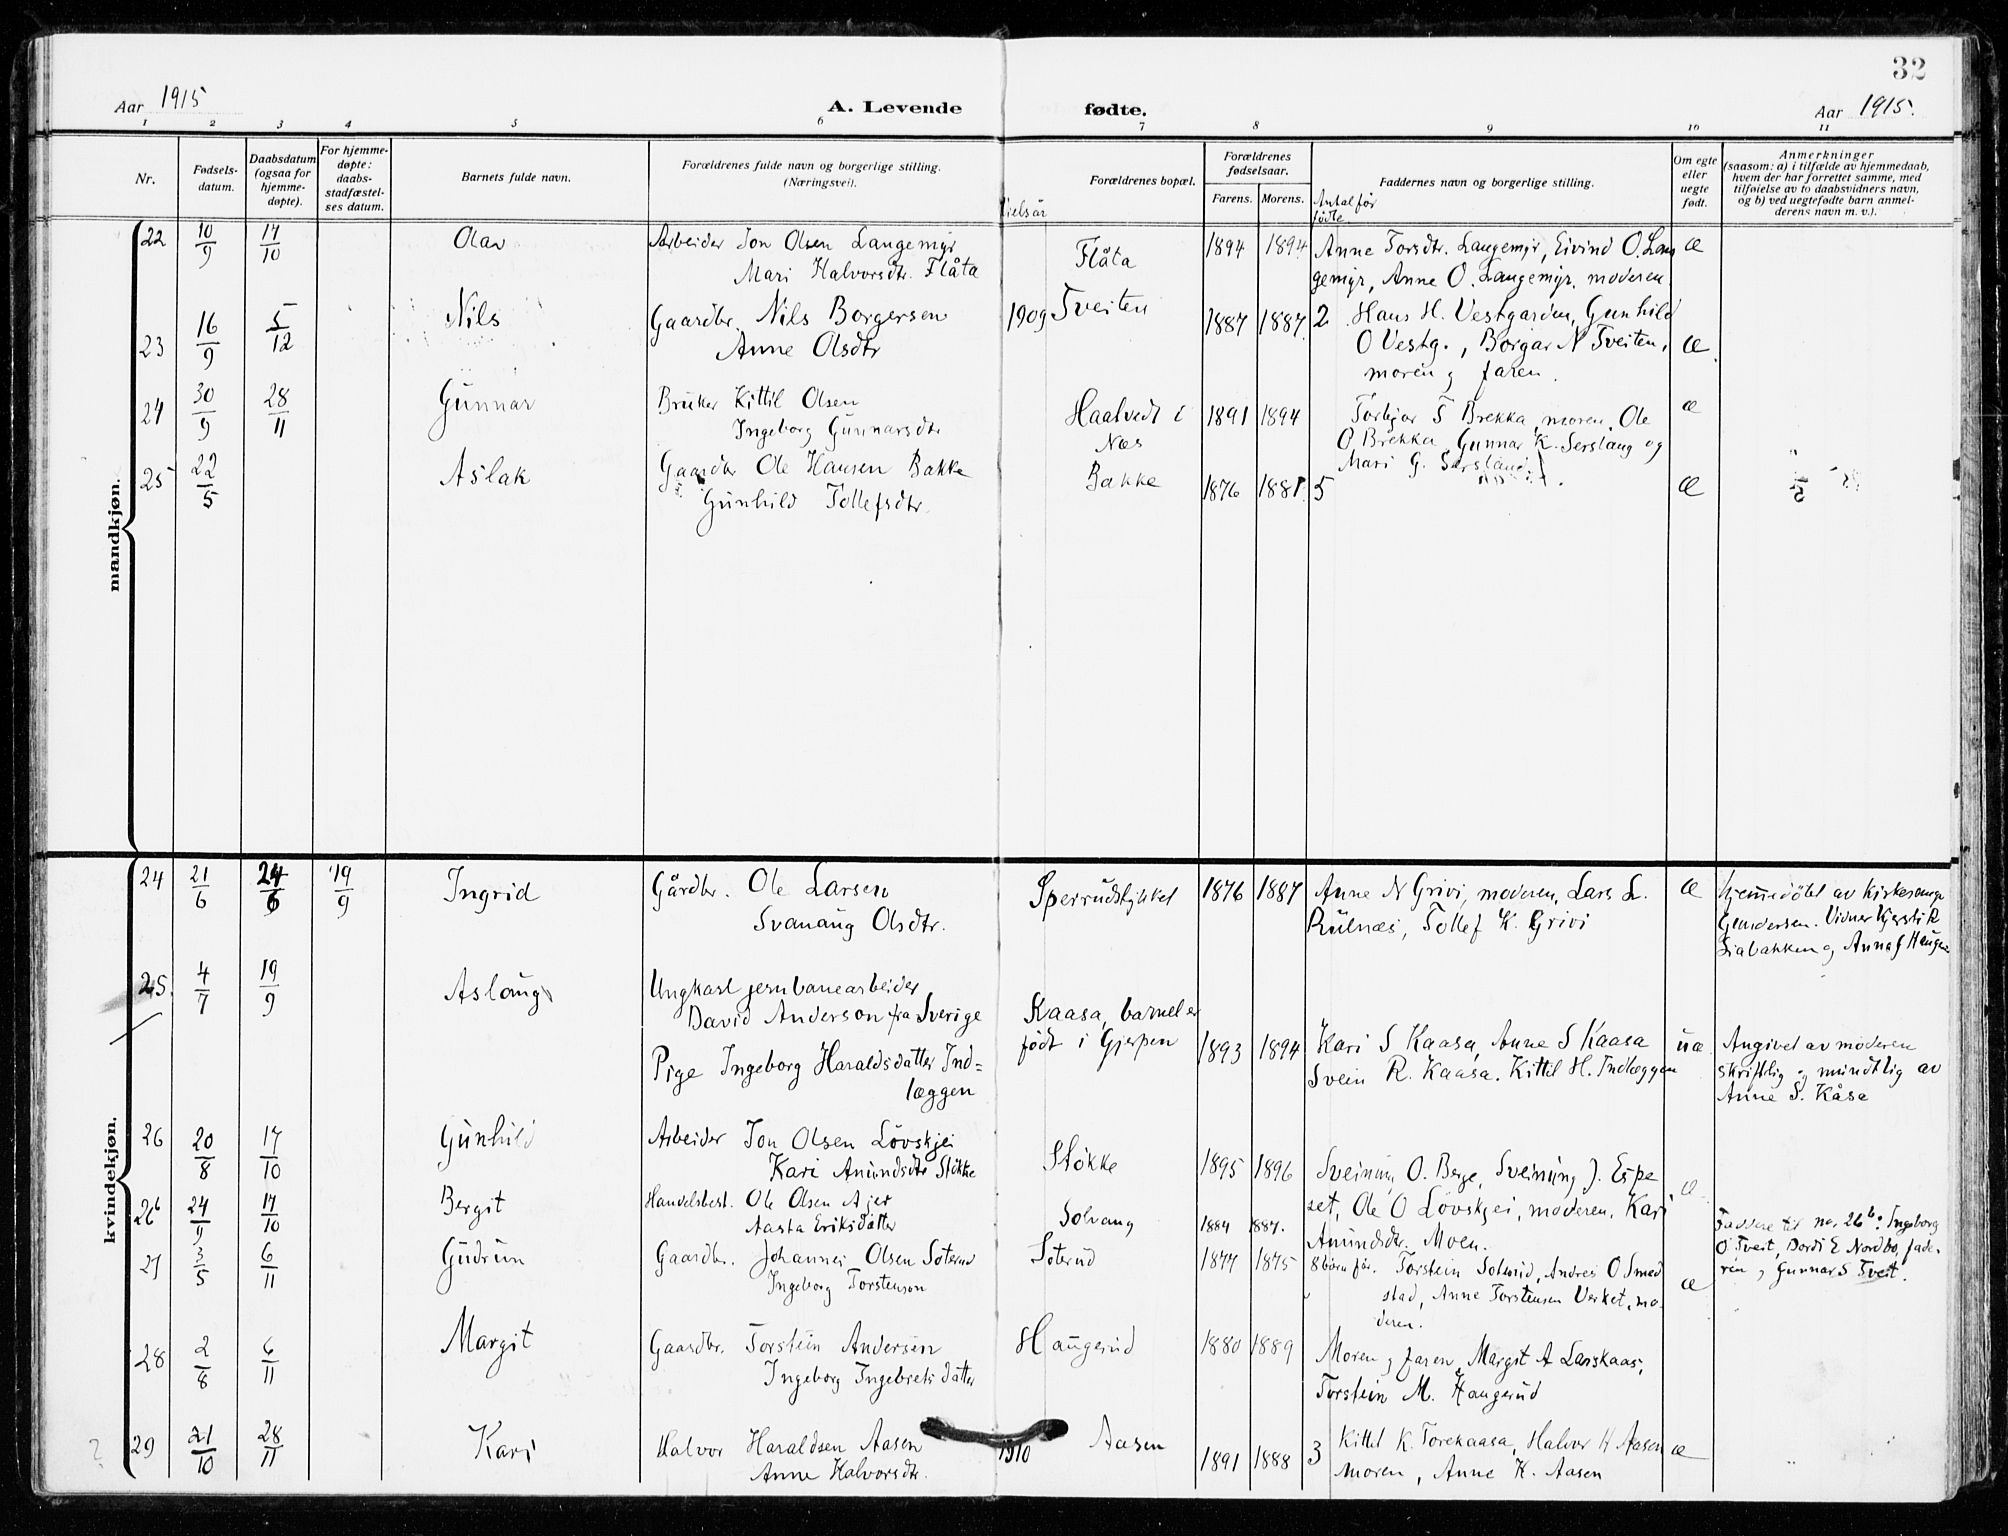 32
Aar 1915
A. Levende fødte.
Aar 1915.
1 2 3 4 5 6 7 8 9 10 11
Nr.
Fødsels-
datum.
Daabsdatum
(ogsaa for
hjemme-
døpte).
For hjemme-
døpte:
daabs-
stadfæstel-
ses datum.
Barnets fulde navn.
Forældrenes fulde navn og borgerlige stilling.
(Næringsvei).
Forældrenes bopæl.
Forældrenes
fødselsaar.
Farens. Morens.
Antal før
fødte
Faddernes navn og borgerlige stilling.
Om egte
eller
uegte
født.
Anmerkninger
(saasom: a) i tilfælde av hjemmedaab,
hvem der har forrettet samme, med
tilføielse av to daabsvidners navn,
og b) ved uegtefødte barn anmel-
derens navn m. v.).
mandkjøn.
22 10/9 17/10 Olav Arbeider Jon Olsen Langemyr Flåta 1894 1894 Anne Torsdtr. Langemyr, Eivind O. Lan æ
Mari Halvorsdtr. Flåta gemyr, Anne O. Langemyr. moderen.
23 16/9 5/12 Nils Gaardbr. Nils Borgersen 1909 Tveiten 1887 1887. 2 Hans H. Vestgarden, Gunhild
Anne Olsdtr O Vestg., Borgar N Tveiten, æ
moren og faren.
24 30/9 28/11 Gunnar Bruker Kittil Olsen Haatvedt i 1891 1894 Torbjør T Brekka, moren, Ole æ
Ingeborg Gunnarsdtr Næs O Brekka, Gunnar K. Serslang og
Mari G.
25 22/5 Aslak Gaardbr Ole Hansen Bakke Bakke 1876 1881. 5 æ
Gunhild Tollefsdtr.
kvindekjøn.
24 21/6 24/6 19/9 Ingrid Gårdbr. Ole Larsen Sperrudstykket 1876 1887 Anne N Grivi, moderen, Lars L. æ Hjemmedöbt av kirkesanger
Svanaug Olsdtr. Rulnæs, Tollef K. Grivi Gundersen. Vidner Kjersti R
Liabakken og Anna J Haugen
25. 4/7 19/9 Aslaug Ungkarl jernbanearbeider
David Anderson fra Sverige Kaasa, barnet er
født i Gjerpen 1893 1894 Kari S Kaasa, Anne S Kaasa uæ. Angivet av moderen
Pige Ingeborg Haraldsdatter Ind= Svein R. Kaasa. Kittil H. Indlæggen skriftlig og mundtlig av
læggen Anne S. Kåsa
26 20/8 17/10 Gunhild Arbeider Jon Olsen Lövskjei Stökke 1895 1896 Sveinung O. Berge, Sveinung J. Espe
Kari Amundsdtr Stökke set, Ole O Lövskjei, moderen, Kari æ
Amundsdtr. Moen.
26b 24/9 17/10 Bergit Handelsbest. Ole Olsen Ajer Solvang 1884 1887. Faddere til no. 26b: Ingeborg
Aasta Eriksdatter O Tveit, Dordi E Nordbø, fade-
ren og Gunnar S Tveit.
27 3/5 6/11 Gudrun Gaardbr. Johannes Olsen Soterud Soterud 1877 1875 8 børn før. Torstein Soterud, Andres O Smed
Ingeborg Torstenson stad, Anne Torstensen Verket, mo- æ
deren.
28 2/8 6/11 Margit Gaardbr. Torstein Andersen Haugerud 1880 1889 Moren og faren, Margit A Larskaas,
Ingeborg Ingebretsdatter Torstein M. Haugerud
? 29 21/10 28/11 Kari Halvor Haraldsen Aasen 1910 Aasen 1891 1888 3 Kittil K. Torekaasa, Halvor H Aasen æ
Anne Halvorsdtr. moren, Anne K. Aasen